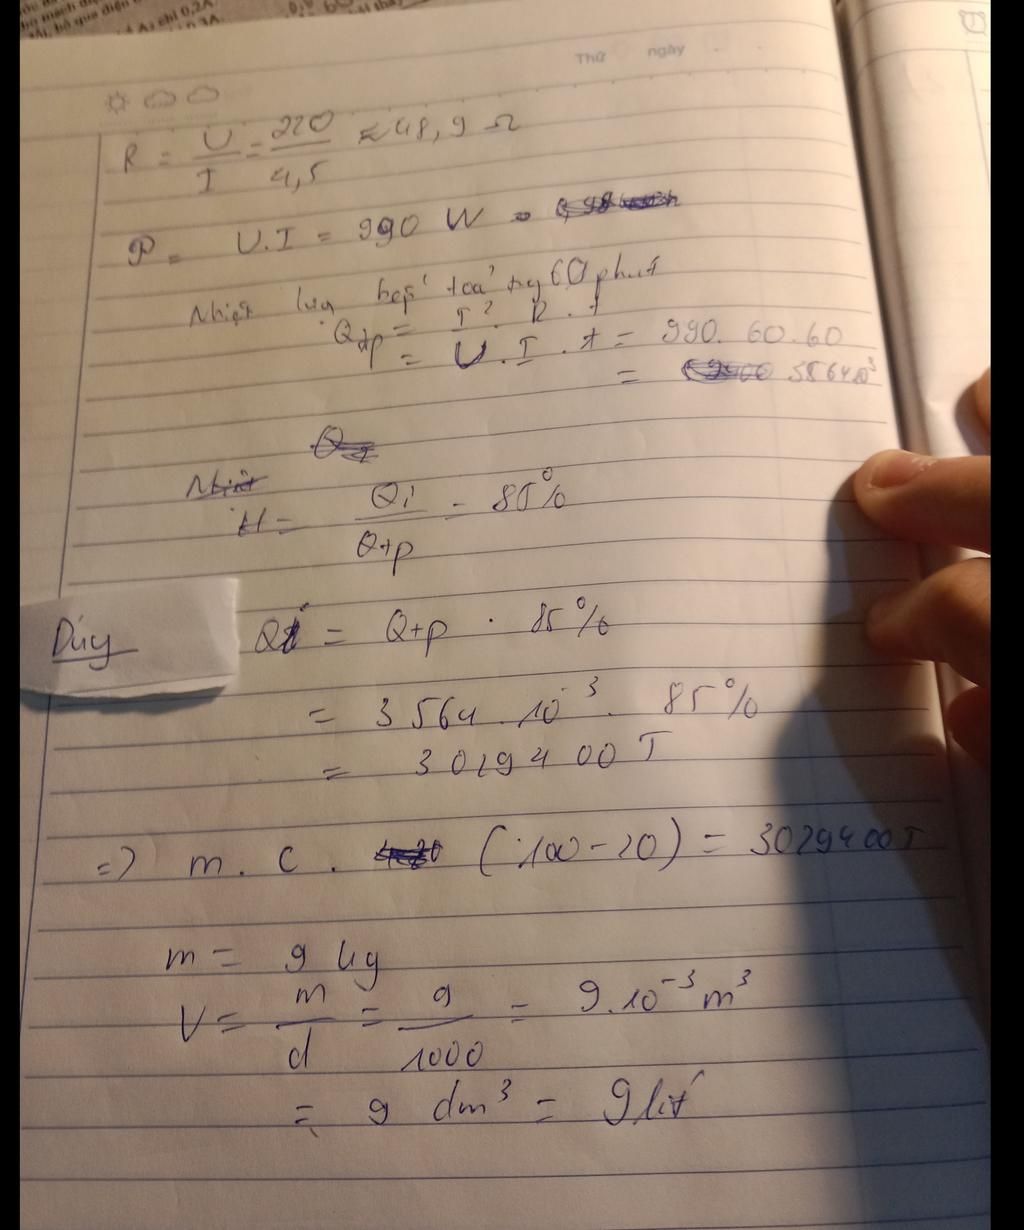 Thứ ngày
R = U/I = 220/4,5 ≈ 48,9 Ω
P = U.I = 990 W =
Nhiệt lượng bếp toả 60 phút
Qtp = I². R . t
= U . I . t = 990. 60.60
= 3564.10³
H = Qi/Qtp = 85%
Dúy
Qi = Qtp . 85%
= 3564.10³. 85%
= 3029400 J
=> m . C . (100-20) = 3029400 J
m = 9 kg
V = m/d = 9/1000 = 9.10⁻³ m³
= 9 dm³ = 9 lít